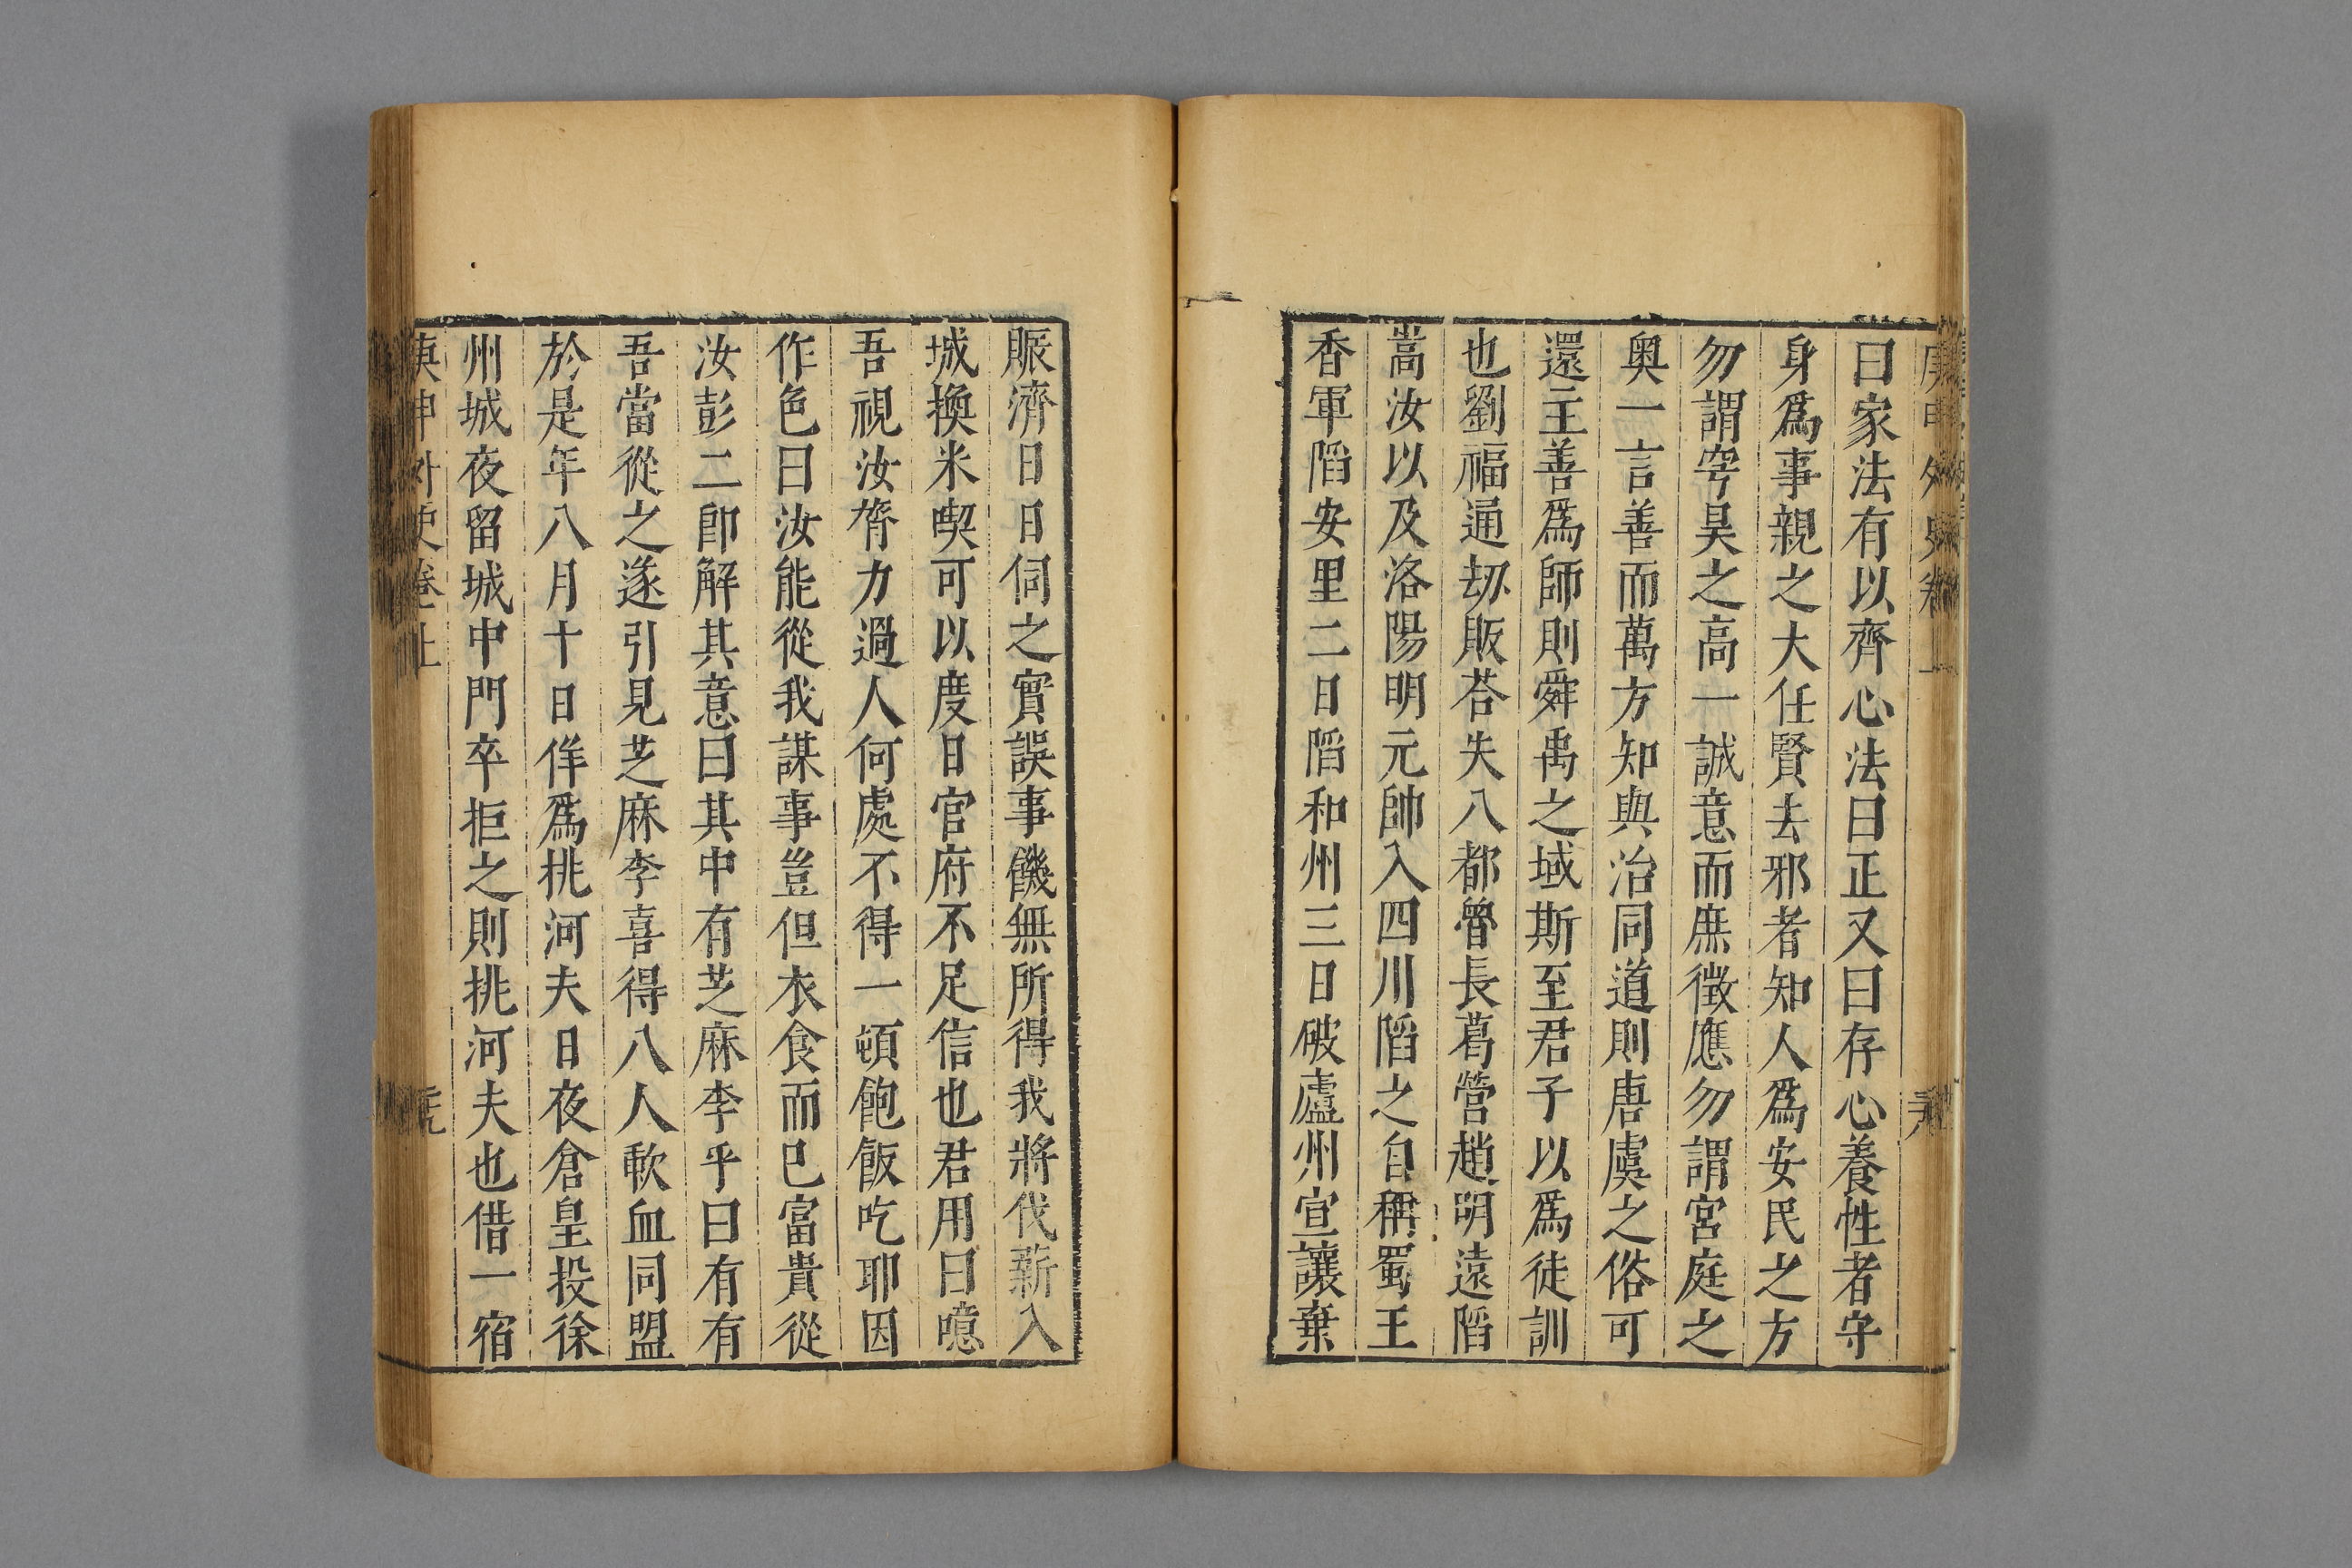 庚申外史卷上
曰家法有以齊心法曰正又曰存心養性者守
身爲事親之大任賢去邪者知人爲安民之方
勿謂穹昊之高一誠意而庶徵應勿謂宮庭之
奥一言善而萬方知與治同道則唐虞之俗可
還主善爲師則舜禹之域斯至君子以爲徒訓
也劉福通刼販荅失八都魯長葛營趙明遠䧟
嵩汝以及洛陽明元帥入四川䧟之自稱蜀王
香軍䧟安里二日䧟和州三日破廬州宣讓棄
賑濟日日伺之實誤事饑無所得我將伐薪入
城換米喫可以度日官府不足信也君用曰噫
吾視汝膂力過人何處不得一頓飽飯吃耶因
作色曰汝能從我謀事豈但衣食而已富貴從
汝彭二卽解其意曰其中有芝麻李乎曰有有
吾當從之遂引見芝麻李喜得八人歃血同盟
於是年八月十日佯爲挑河夫日夜倉皇投徐
州城夜留城中門卒拒之則挑河夫也借一宿
庚申外史卷上